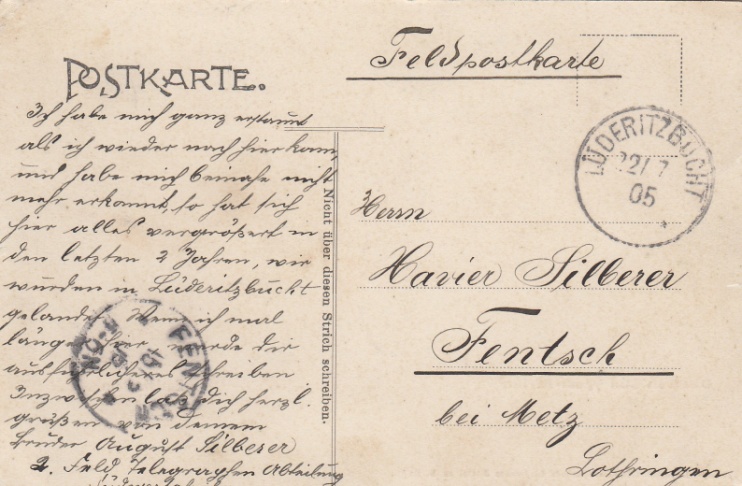 POSTKARTE.
Feldpostkarte
LÜDERITZBUCHT
22/7
05
*
Ich habe mich ganz erstaunt
als ich wieder nach hier kam,
und habe mich beinahe nicht
mehr erkannt, so hat sich
hier alles vergrößert in
den letzten 2 Jahren, wir
wurden in Lüderitzbucht
gelandet. Wenn ich mal
länger hier werde dir
ausführlicher schreiben
Inzwischen laß dich herzl.
grüßen von deinem
Bruder August Silberer
2. Feld Telegraphen Abteilung
Nicht über diesen Strich schreiben.
Herrn
Xavier Silberer
Fentsch
bei Metz
Lothringen